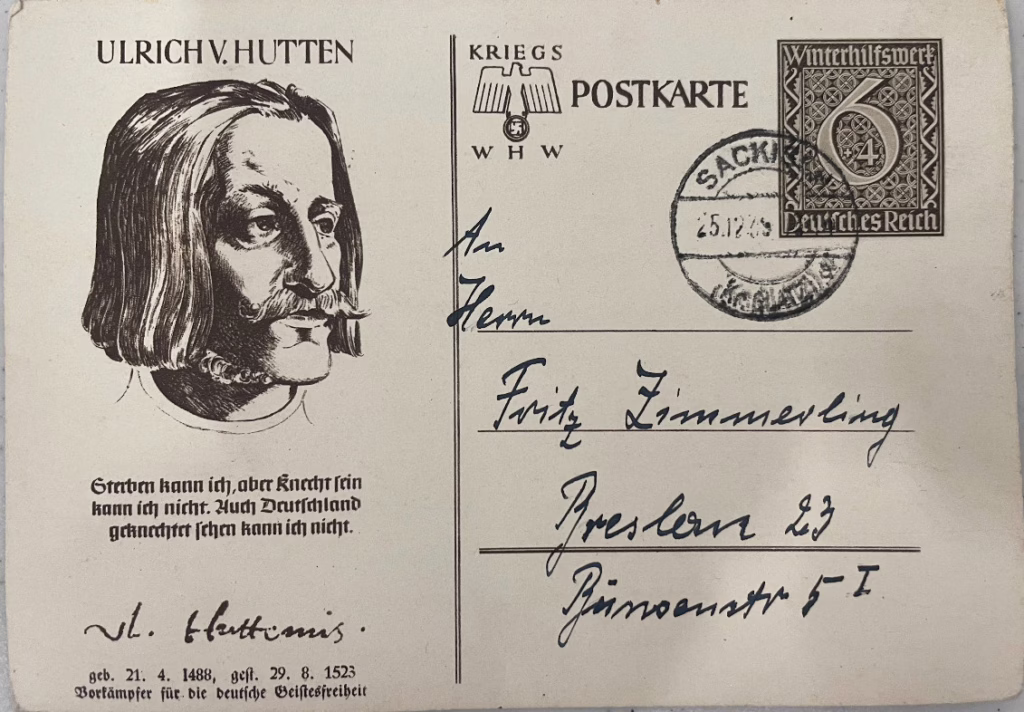 ULRICH V. HUTTEN
Sterben kann ich, aber Knecht sein
kann ich nicht. Auch Deutschland
geknechtet sehen kann ich nicht.
geb. 21. 4. 1488, gest. 29. 8. 1523
Vorkämpfer für die deutsche Geistesfreiheit
KRIEGS
WHW
POSTKARTE
Winterhilfswerk
6
+4
Deutsches Reich
25.12
An
Herrn
Fritz Zimmerling
Breslau 23
5 I